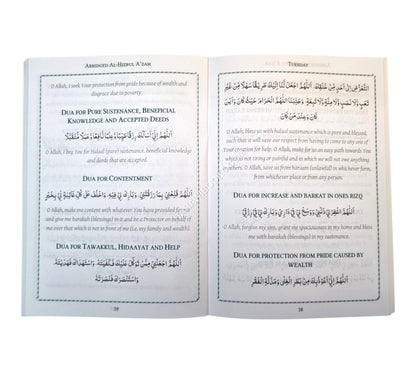 TUESDAY
التَّعَرُّضِ إِلَى أَحَدٍ مِنْ خَلْقِكَ. اَللّٰهُمَّ اجْعَلْ لَنَا إِلَيْكَ طَرِيقًا سَهْلًا مِّنْ غَيْرِ
تَعَبٍ وَّلَا نَصَبٍ وَّلَا مِنَّةٍ وَّلَا تَبِعَةٍ. وَجَنِّبْنَا اللّٰهُمَّ الْحَرَامَ حَيْثُ كَانَ وَأَيْنَ
كَانَ وَعِنْدَ مَنْ كَانَ
O Allah, bless us with halaal sustenance which is pure and blessed,
such that it will save our respect from having to come to any one of
Your creation for help. O Allah, make for us an easy path towards You
which is not tiring or painful and in which we will not owe anything
to others. Save us from haraam (unlawful) in whichever form,
from whichever place or from any person.
DUA FOR INCREASE AND BARKAT IN ONES RIZQ
اَللّٰهُمَّ اغْفِرْ لِيْ ذَنْبِيْ وَوَسِّعْ لِيْ فِيْ دَارِيْ وَبَارِكْ لِيْ فِيْ رِزْقِيْ
O Allah, forgive my sins, grant me spaciousness in my home and bless
me with barakah (blessings) in my sustenance.
DUA FOR PROTECTION FROM PRIDE CAUSED BY
WEALTH
اَللّٰهُمَّ إِنِّيْ أَعُوْذُ بِكَ مِنْ بَطَرِ الْغِنٰى وَمَذَلَّةِ الْفَقْرِ
38
ABRIDGED AL-HIZBUL A'ZAM
O Allah, I seek Your protection from pride because of wealth and
disgrace due to poverty.
DUA FOR PURE SUSTENANCE, BENEFICIAL
KNOWLEDGE AND ACCEPTED DEEDS
اَللّٰهُمَّ إِنِّيْ أَسْأَلُكَ رِزْقًا طَيِّبًا وَعِلْمًا نَافِعًا وَعَمَلًا مُتَقَبَّلًا
O Allah, I beg You for halaal (pure) sustenance, beneficial knowledge
and deeds that are accepted.
DUA FOR CONTENTMENT
اَللّٰهُمَّ قَنِّعْنِيْ بِمَا رَزَقْتَنِيْ وَبَارِكْ لِيْ فِيْهِ وَاخْلُفْ عَلٰى كُلِّ غَائِبَةٍ لِيْ بِخَيْرٍ
O Allah, make me content with whatever You have provided for me
and give me barakah (blessings) in it and be a Protector on behalf of
me over that which is not in front of me (i.e. my family and wealth).
DUA FOR TAWAKKUL, HIDAAYAT AND HELP
اَللّٰهُمَّ اجْعَلْنِيْ مِمَّنْ تَوَكَّلَ عَلَيْكَ فَكَفَيْتَهُ وَاسْتَهْدَاكَ فَهَدَيْتَهُ
وَاسْتَنْصَرَكَ فَنَصَرْتَهُ
39